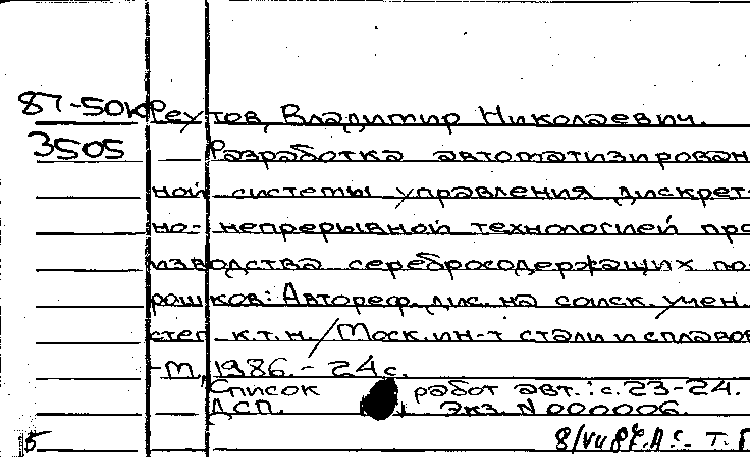 87-50к Реутов, Владимир Николаевич.
3505 Разработка автоматизирован
ной системы управления дискрет
но-непрерывной технологией про
изводства серебросодержащих по
рошков: Автореф. дис. на соиск. учен.
степ. к.т.н. / Моск. ин-т стали и сплавов
-М., 1986.- 24с.
Список работ авт.: с. 23-24.
ДСП. Экз. N 000006.
Б